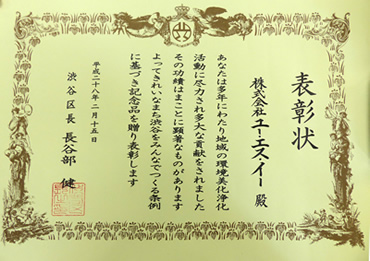 表彰状
株式会社ユー・エス・イー 殿
あなたは多年にわたり地域の環境美化浄化
活動に尽力され多大な貢献をされました
その功績はまことに顕著なものがあります
よってきれいなまち渋谷をみんなでつくる条例
に基づき記念品を贈り表彰します
平成二十八年二月十五日
渋谷区長 長谷部 健